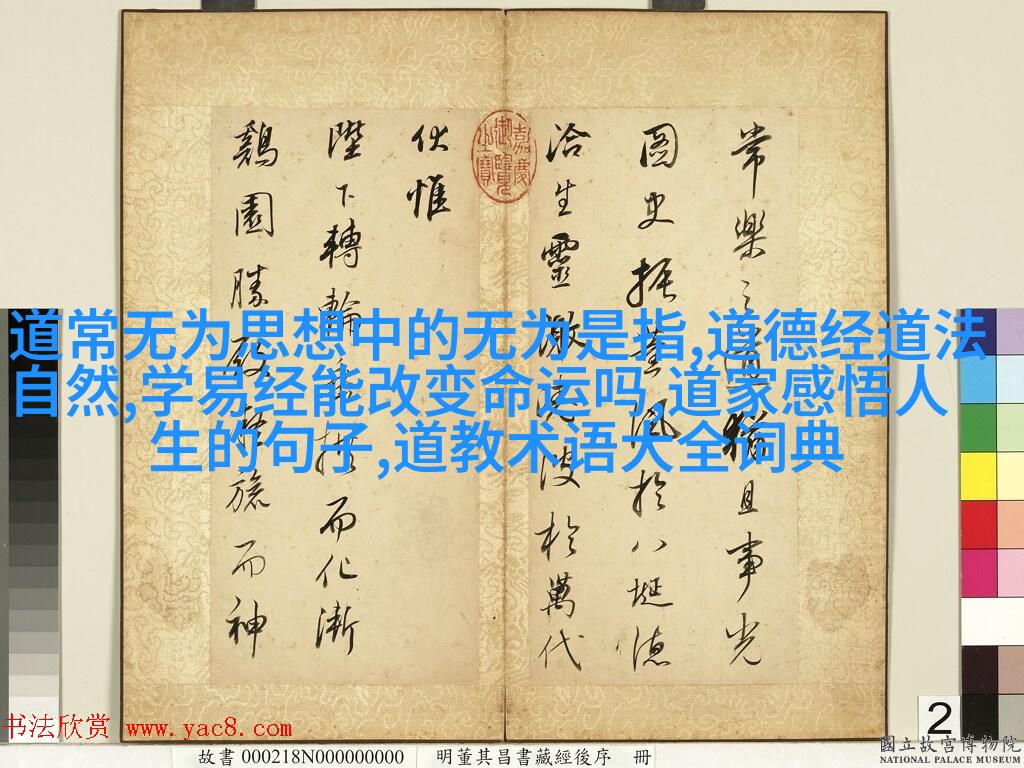 常樂之道猶且事光
圖史振薰風於八埏德
洽生靈激堯波於萬代
伏惟
陛下轉輪垂拱而化漸
鷄園勝殿凝旒而神
嘉慶御覽之寶
道常无为思想中的无为是指,道德经道法
自然,学易经能改变命运吗,道家感悟人
生的句子,道教术语大全词典
书法欣赏 www.yac8.com
2
故書 000218N000000000 明董其昌書藏經後序 冊
國立故宮博物院
NATIONAL PALACE MUSEUM